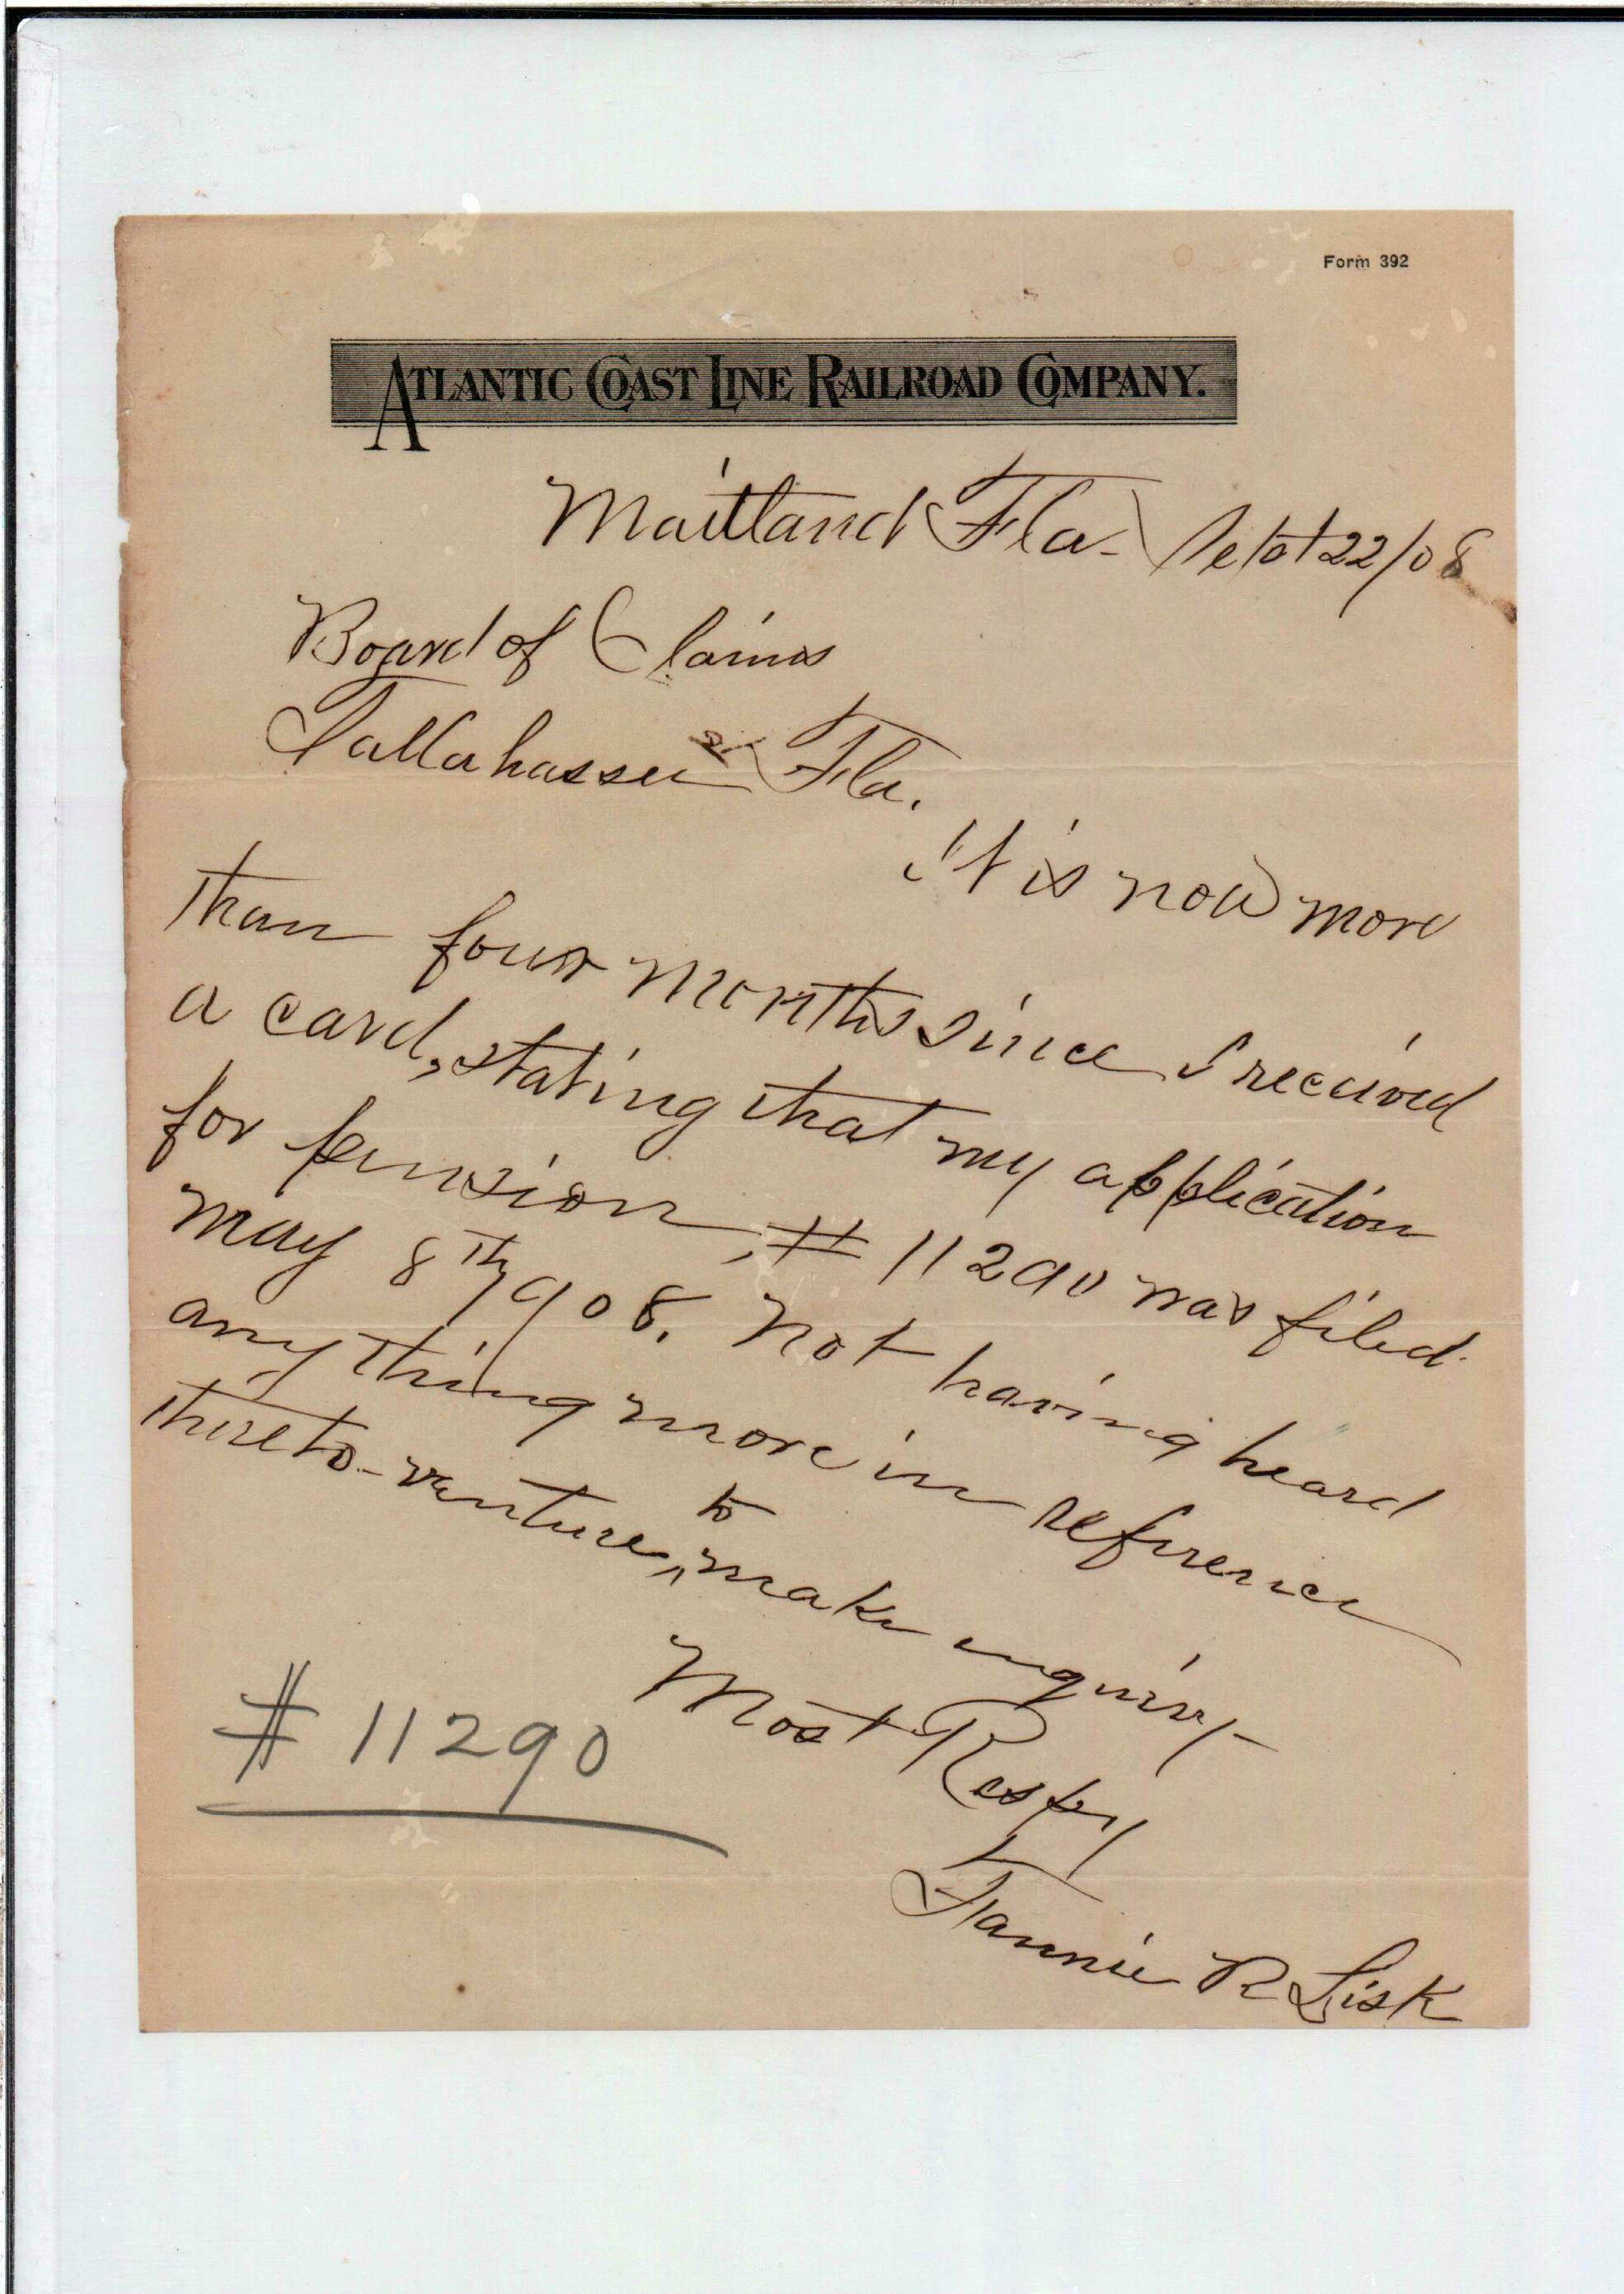 Form 392
ATLANTIC COAST LINE RAILROAD COMPANY.
Maitland Fla - Sept 22/08
Board of Claims
Tallahassee Fla.
It is now more
than four months since I received
a card, stating that my application
for pension, # 11290 was filed.
May 8th 1908. Not having heard
any thing more in reference
thereto - venture, to make inquiry -
Most Respy
Fannie R Lisk
# 11290